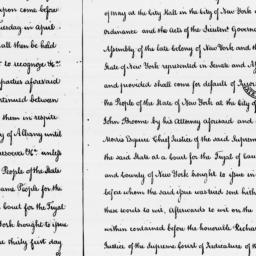 upon come before
Tuesday in April
all then be held
to recognize &c.
parties aforesaid
continued between
them in respite
of Albany until
unless
People of the State
same People for the
a Court for the Tryal
York brought to issue
the thirty first day
of May at the City Hall in the City of New York
ordinance and the Acts of the Lieutent Governor
Assembly of the late Colony of New York and the
State of New York represented in Senate and
and provided shall come for default of Jurors
the People of the State of New York at the City of
John Broome by his Attorney aforesaid and
Moris Esquire Chief Justice of the said Supreme
the said State at a Court for the Tryal of Causes
and County of New York bought to issue in
before whom the said issue was tried and
that is to wit, afterwards to wit on the
within contained before the honorable Richard
Justice of the Supreme Court of Judicature of the